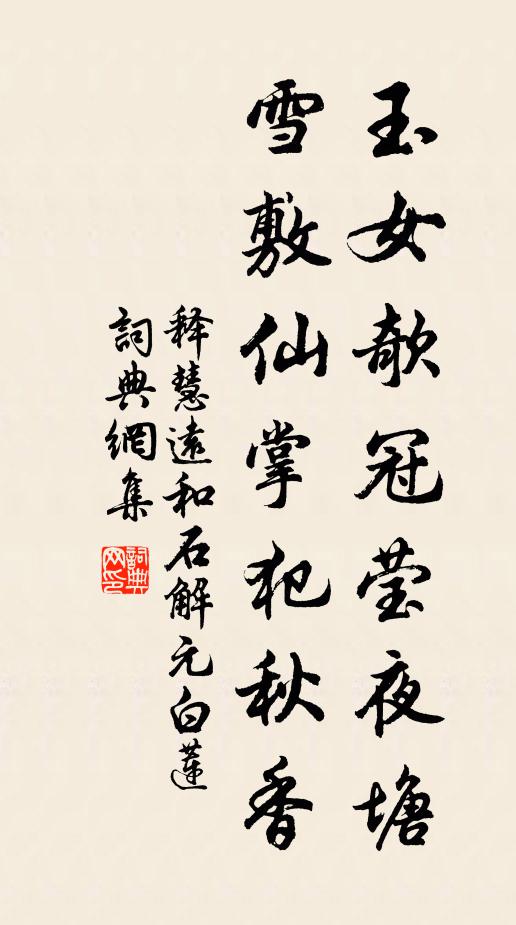 玉女欹冠莹夜塘
雪敷仙掌犯秋香
释慧遠和石解元白蓮
詞典網集
詞典网印